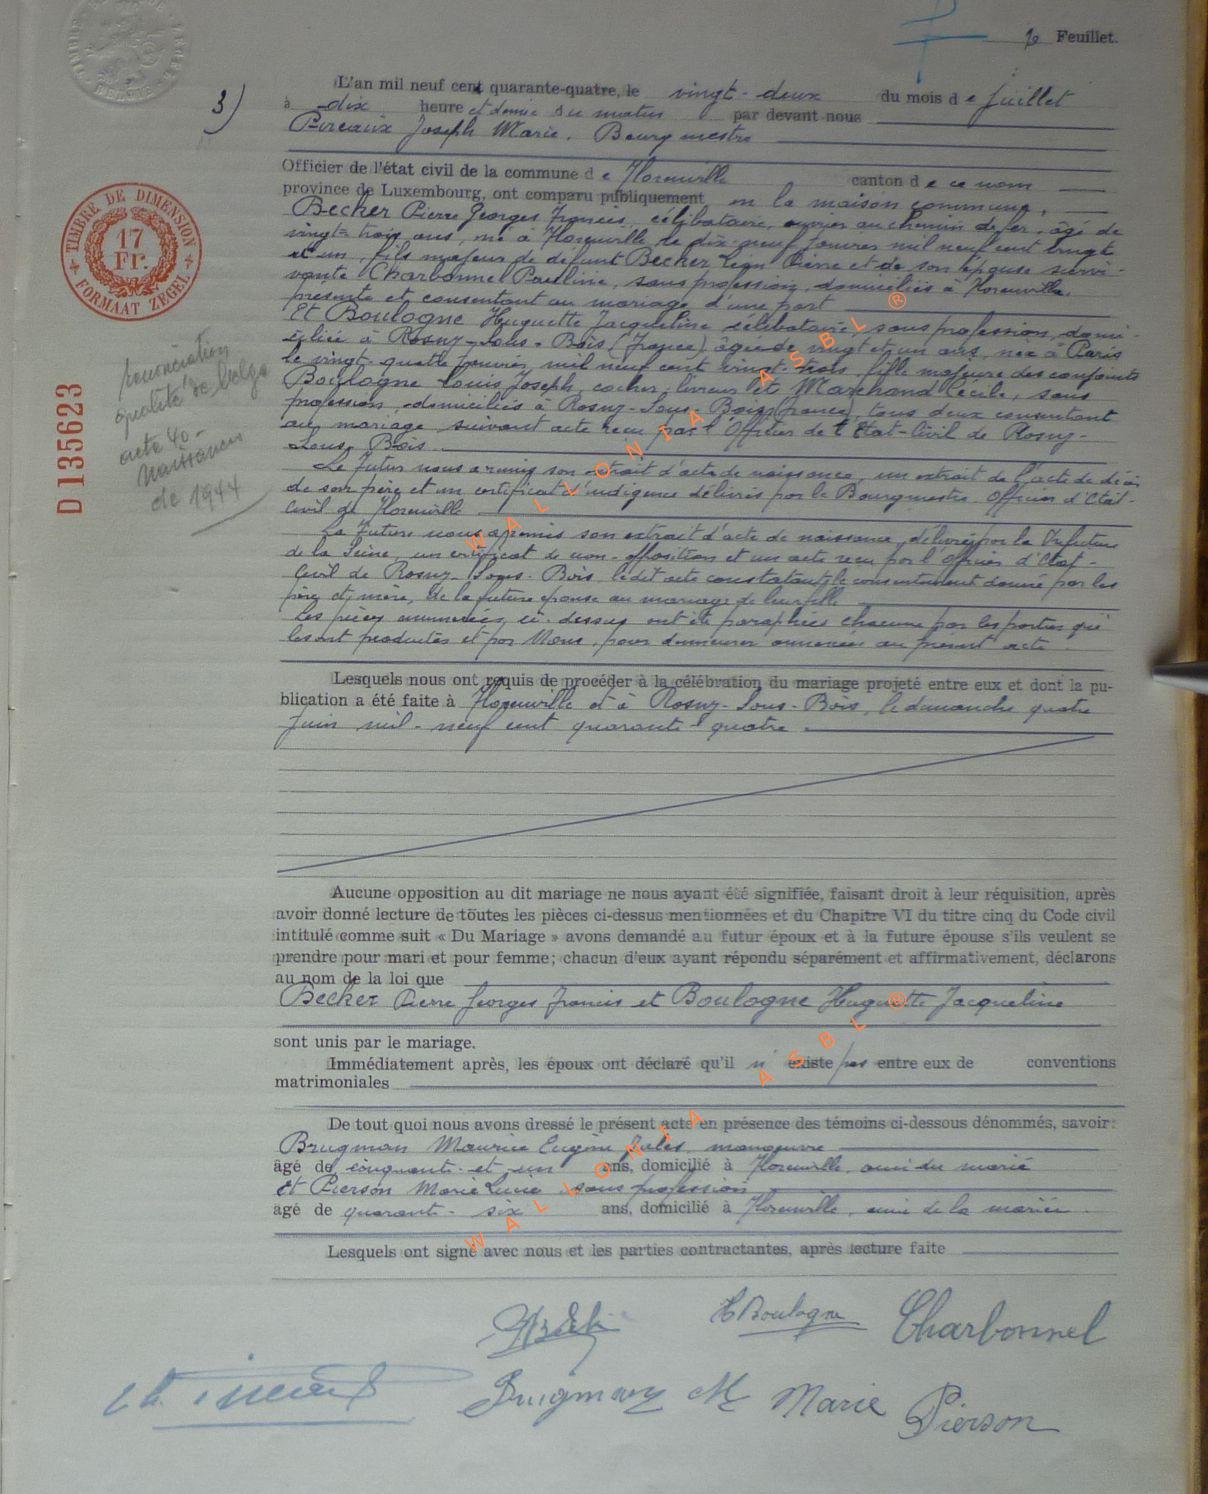 2 Feuillet.
3)
L'an mil neuf cent quarante-quatre, le vingt-deux du mois de Juillet
à dix heure et demie du matin par devant nous
Pireaux Joseph Marie, Bourgmestre
Officier de l'état civil de la commune de Florenville canton de ce nom
province de Luxembourg, ont comparu publiquement en la maison commune,
Becker Pierre Georges Francis, célibataire, ouvrier au chemin de fer, âgé de
vingt-trois ans, né à Florenville le dix-neuf Janvier mil neuf cent vingt
et un, fils majeur de défunt Becker Léon Pierre et de son épouse survi-
vante Charbonnel Pauline, sans profession, domiciliés à Florenville,
présente et consentant au mariage d'une part
Et Boulogne Huguette Jacqueline célibataire, sans profession, domi-
ciliée à Rosny-Sous-Bois (France) âgée de vingt et un ans, née à Paris
le vingt-quatre Janvier mil neuf cent vingt-trois, fille majeure des conjoints
Boulogne Louis Joseph, cocher-livreur et Marchand Cécile, sans
profession, domiciliés à Rosny-Sous-Bois (France), tous deux consentant
au mariage suivant acte reçu par l'Officier de l'Etat-Civil de Rosny-
Sous-Bois.
Le futur nous a remis son extrait d'acte de naissance, un extrait de l'acte de décès
de son père et un certificat d'indigence délivrés par le Bourgmestre Officier d'Etat-
Civil de Florenville
La future nous a remis son extrait d'acte de naissance, délivré par la Préfecture
de la Seine, un certificat de non-opposition et un acte reçu par l'Officier d'Etat-
Civil de Rosny-Sous-Bois, ledit acte constatant le consentement donné par les
père et mère, de la future épouse au mariage de leur fille
Les pièces énumérées ci-dessus ont été paraphées chacune par les parties qui
les ont produites et par Nous, pour demeurer annexées au présent acte.
Lesquels nous ont requis de procéder à la célébration du mariage projeté entre eux et dont la pu-
blication a été faite à Florenville et à Rosny-Sous-Bois, le dimanche quatre
Juin mil-neuf cent quarante-quatre.
Aucune opposition au dit mariage ne nous ayant été signifiée, faisant droit à leur réquisition, après
avoir donné lecture de toutes les pièces ci-dessus mentionnées et du Chapitre VI du titre cinq du Code civil
intitulé comme suit « Du Mariage » avons demandé au futur époux et à la future épouse s'ils veulent se
prendre pour mari et pour femme; chacun d'eux ayant répondu séparément et affirmativement, déclarons
au nom de la loi que
Becker Pierre Georges Francis et Boulogne Huguette Jacqueline
sont unis par le mariage.
Immédiatement après, les époux ont déclaré qu'il n' existe pas entre eux de conventions
matrimoniales
De tout quoi nous avons dressé le présent acte en présence des témoins ci-dessous dénommés, savoir:
Brugman Maurice Eugène Jules, manoeuvre
âgé de cinquante-et-un ans, domicilié à Florenville, ami du marié
et Pierson Marie Lucie, sans profession
âgé de quarante-six ans, domicilié à Florenville, amie de la mariée.
Lesquels ont signé avec nous et les parties contractantes, après lecture faite
H Boulogne
Charbonnel
Brugman M
Marie Pierson
TIMBRE DE DIMENSION
17
Fr.
FORMAAT ZEGEL
D 135623
renonciation
qualité de belge
acte 40-
Naissances
de 1944
WALLONIA ASBL ®
WALLONIA ASBL ®